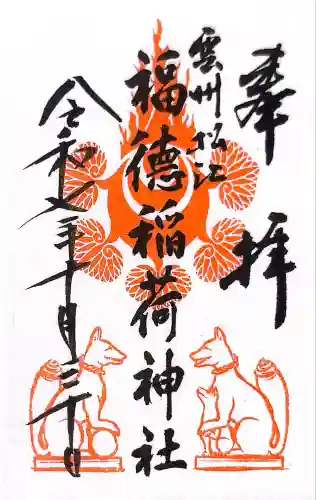 奉拝
雲州松江
福徳稲荷神社
令和五年十月三十日